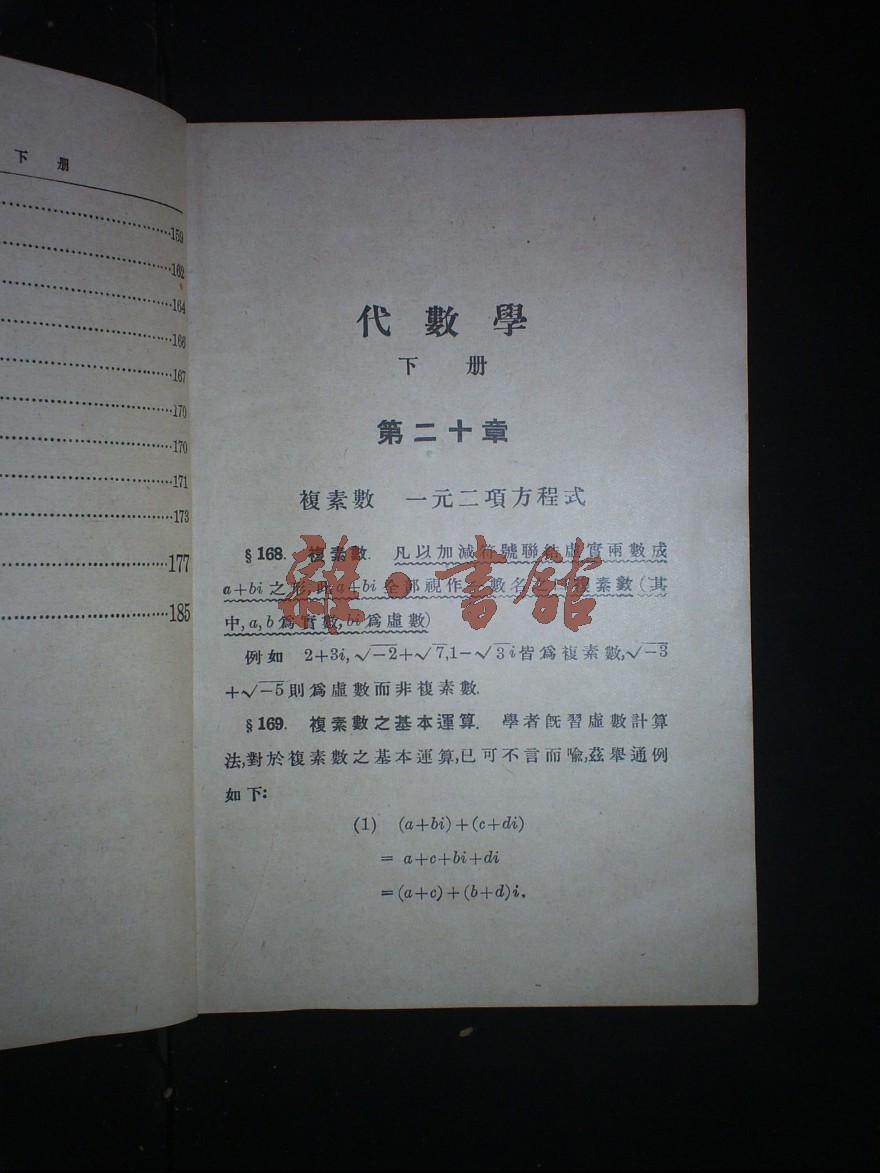 下 册
159
162
164
166
167
170
170
171
173
177
185
代 數 學
下 册
第二十章
複素數 一元二項方程式
§168. 複素數. 凡以加減符號聯結虛實兩數成
a+bi 之形,此 a+bi 全部視作 數名之 複素數(其
中,a,b 爲實數,bi 爲虛數)
例如 2+3i,√-2+√7,1-√3i皆爲複素數,√-3
+√-5則爲虛數而非複素數.
§169. 複素數之基本運算. 學者旣習虛數計算
法,對於複素數之基本運算,已可不言而喩,茲舉通例
如下:
(1) (a+bi)+(c+di)
= a+c+bi+di
=(a+c)+(b+d)i.
雜·書館